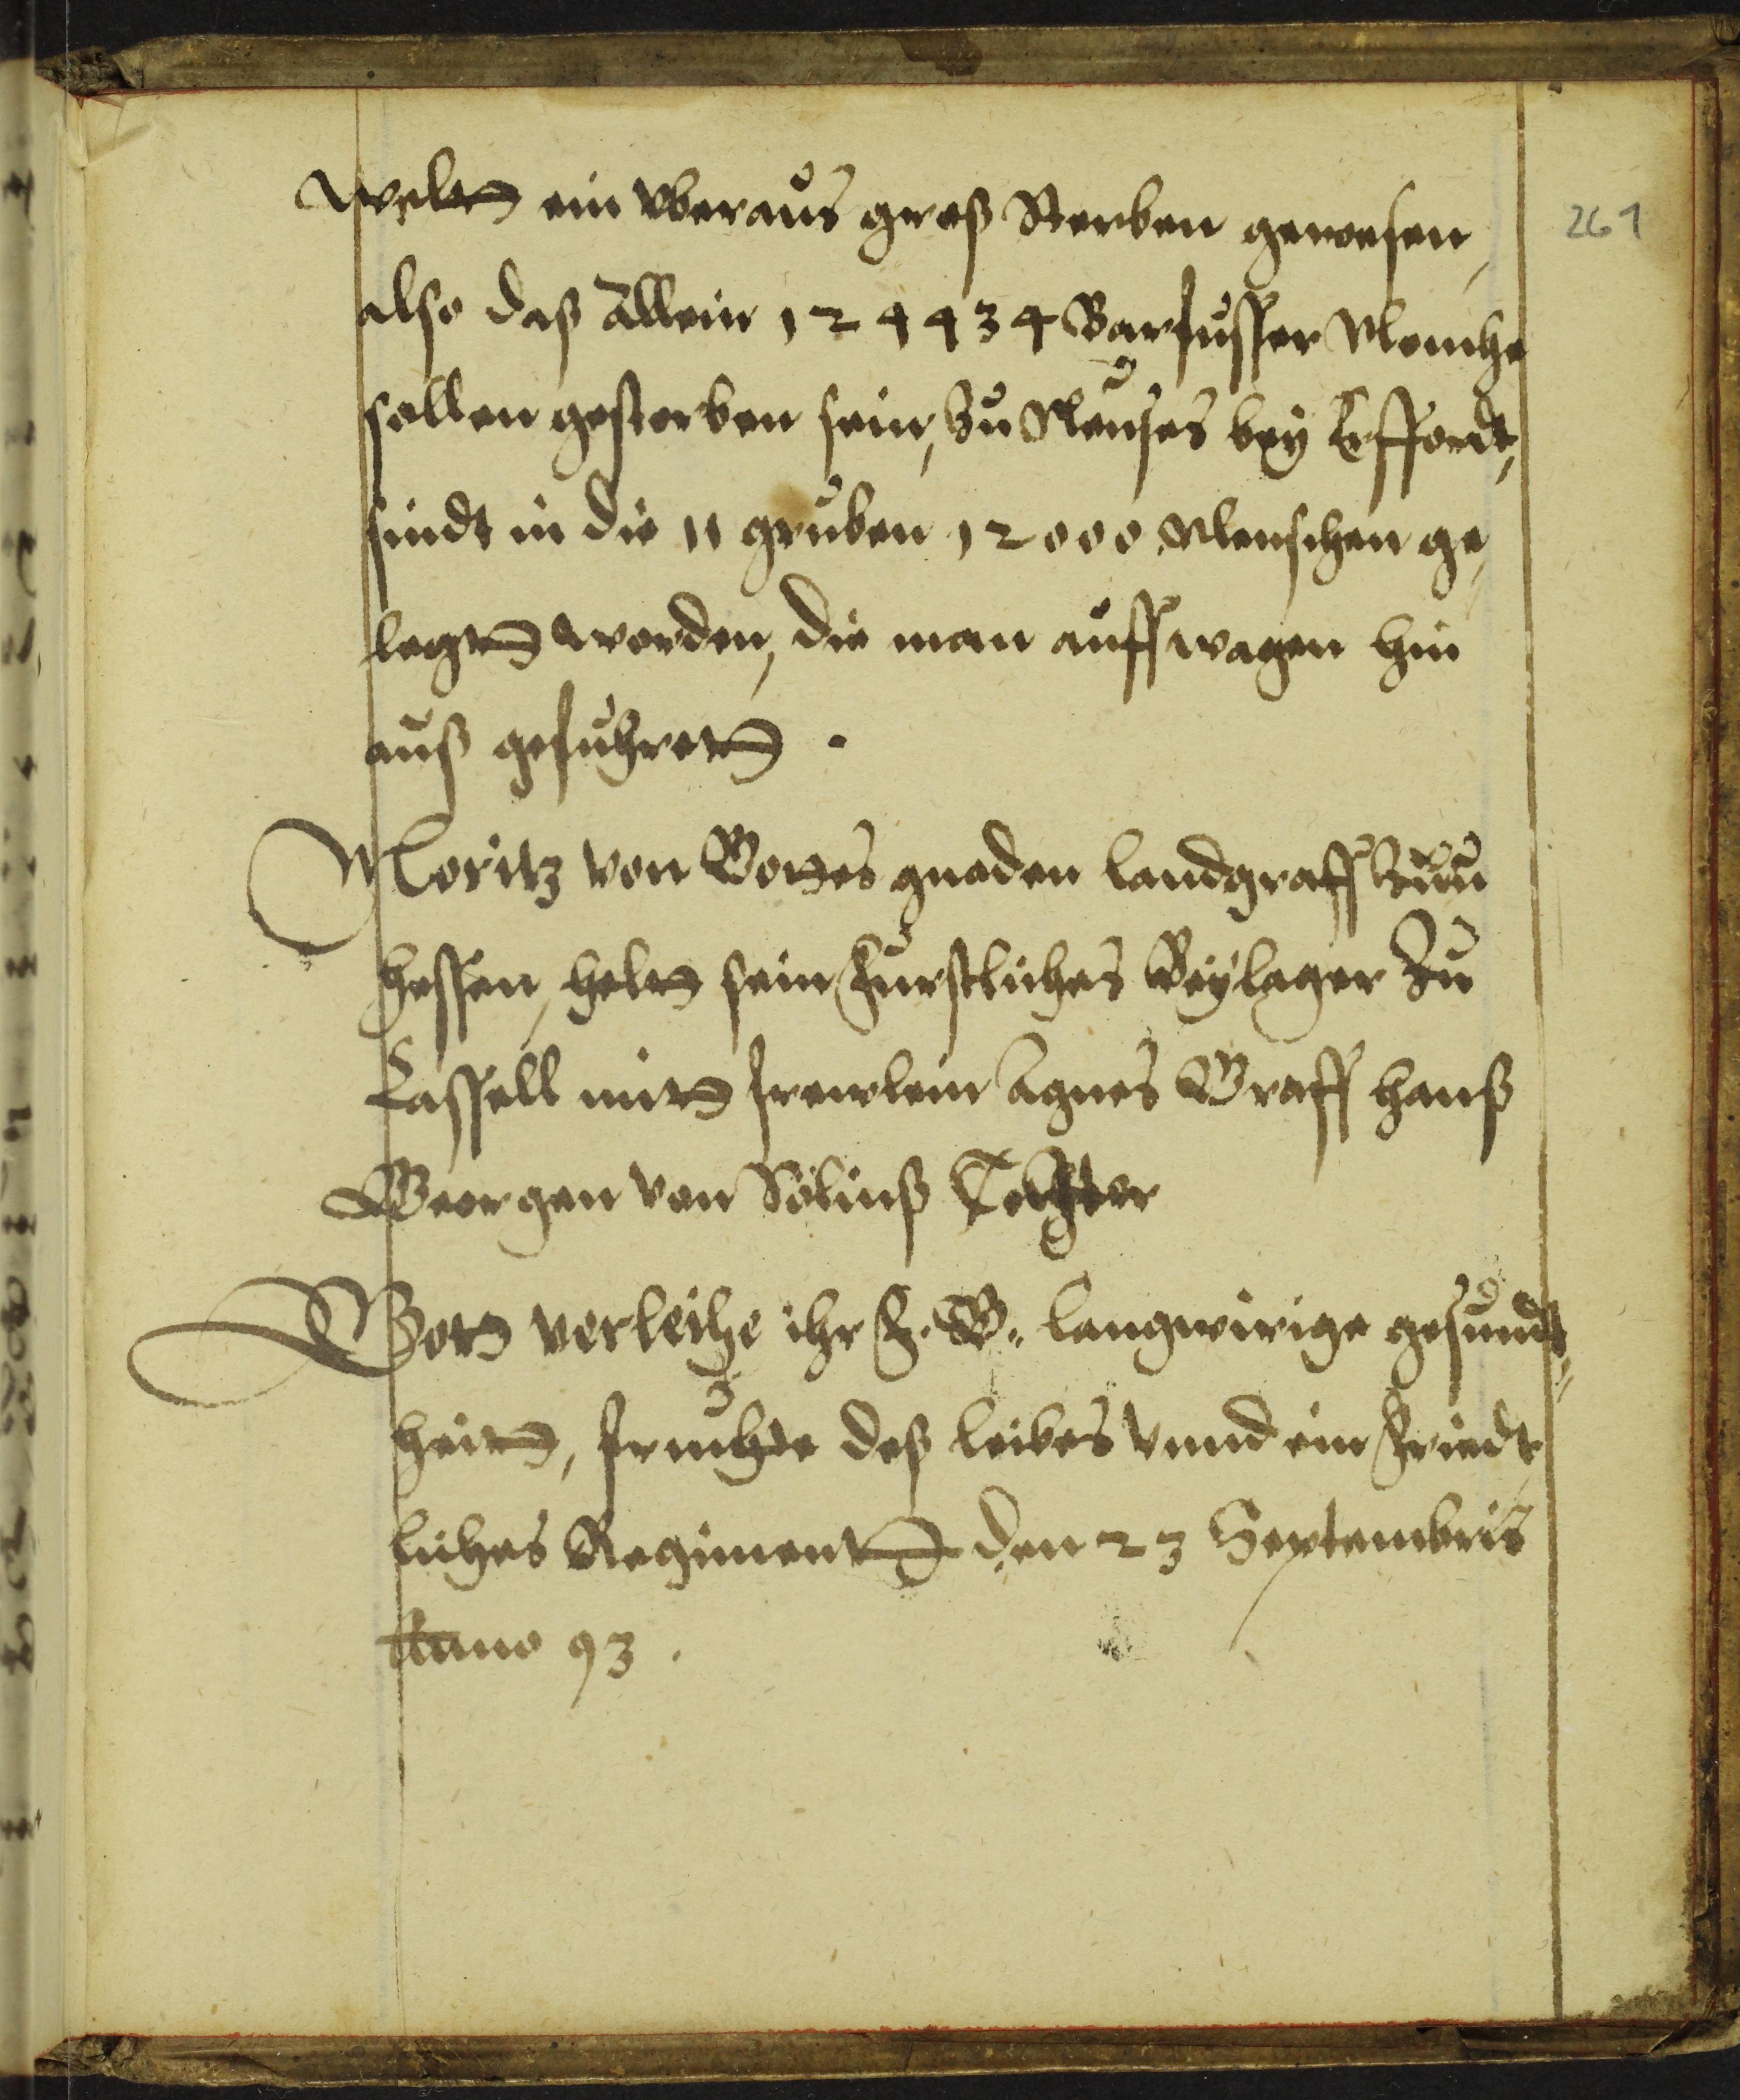 Weltt ein vberaus groß Sterben gewesen,
261
also daß Allein 124434 Barfusser Monche
sollen gestorben sein, Zu Neuses bey Erffordt,
sindt in die 11 gruben 12000 Menschen ge,
legtt worden, die man auff wagen hin
auß gefuhrett.
Moritz von Gottes gnaden landgraff Zuu
hessen, heltt sein Furstliches Beylager Zu
Cassell mitt frewlein Agnes Graff hanß
Georgen von Solmß Tochter
Gott verleihe ihr F. G. langwirige gesundt„
heitt, fruchte deß leibes vnnd ein Friedt
liches Regimentt den 23 Septembris
Anno 93.